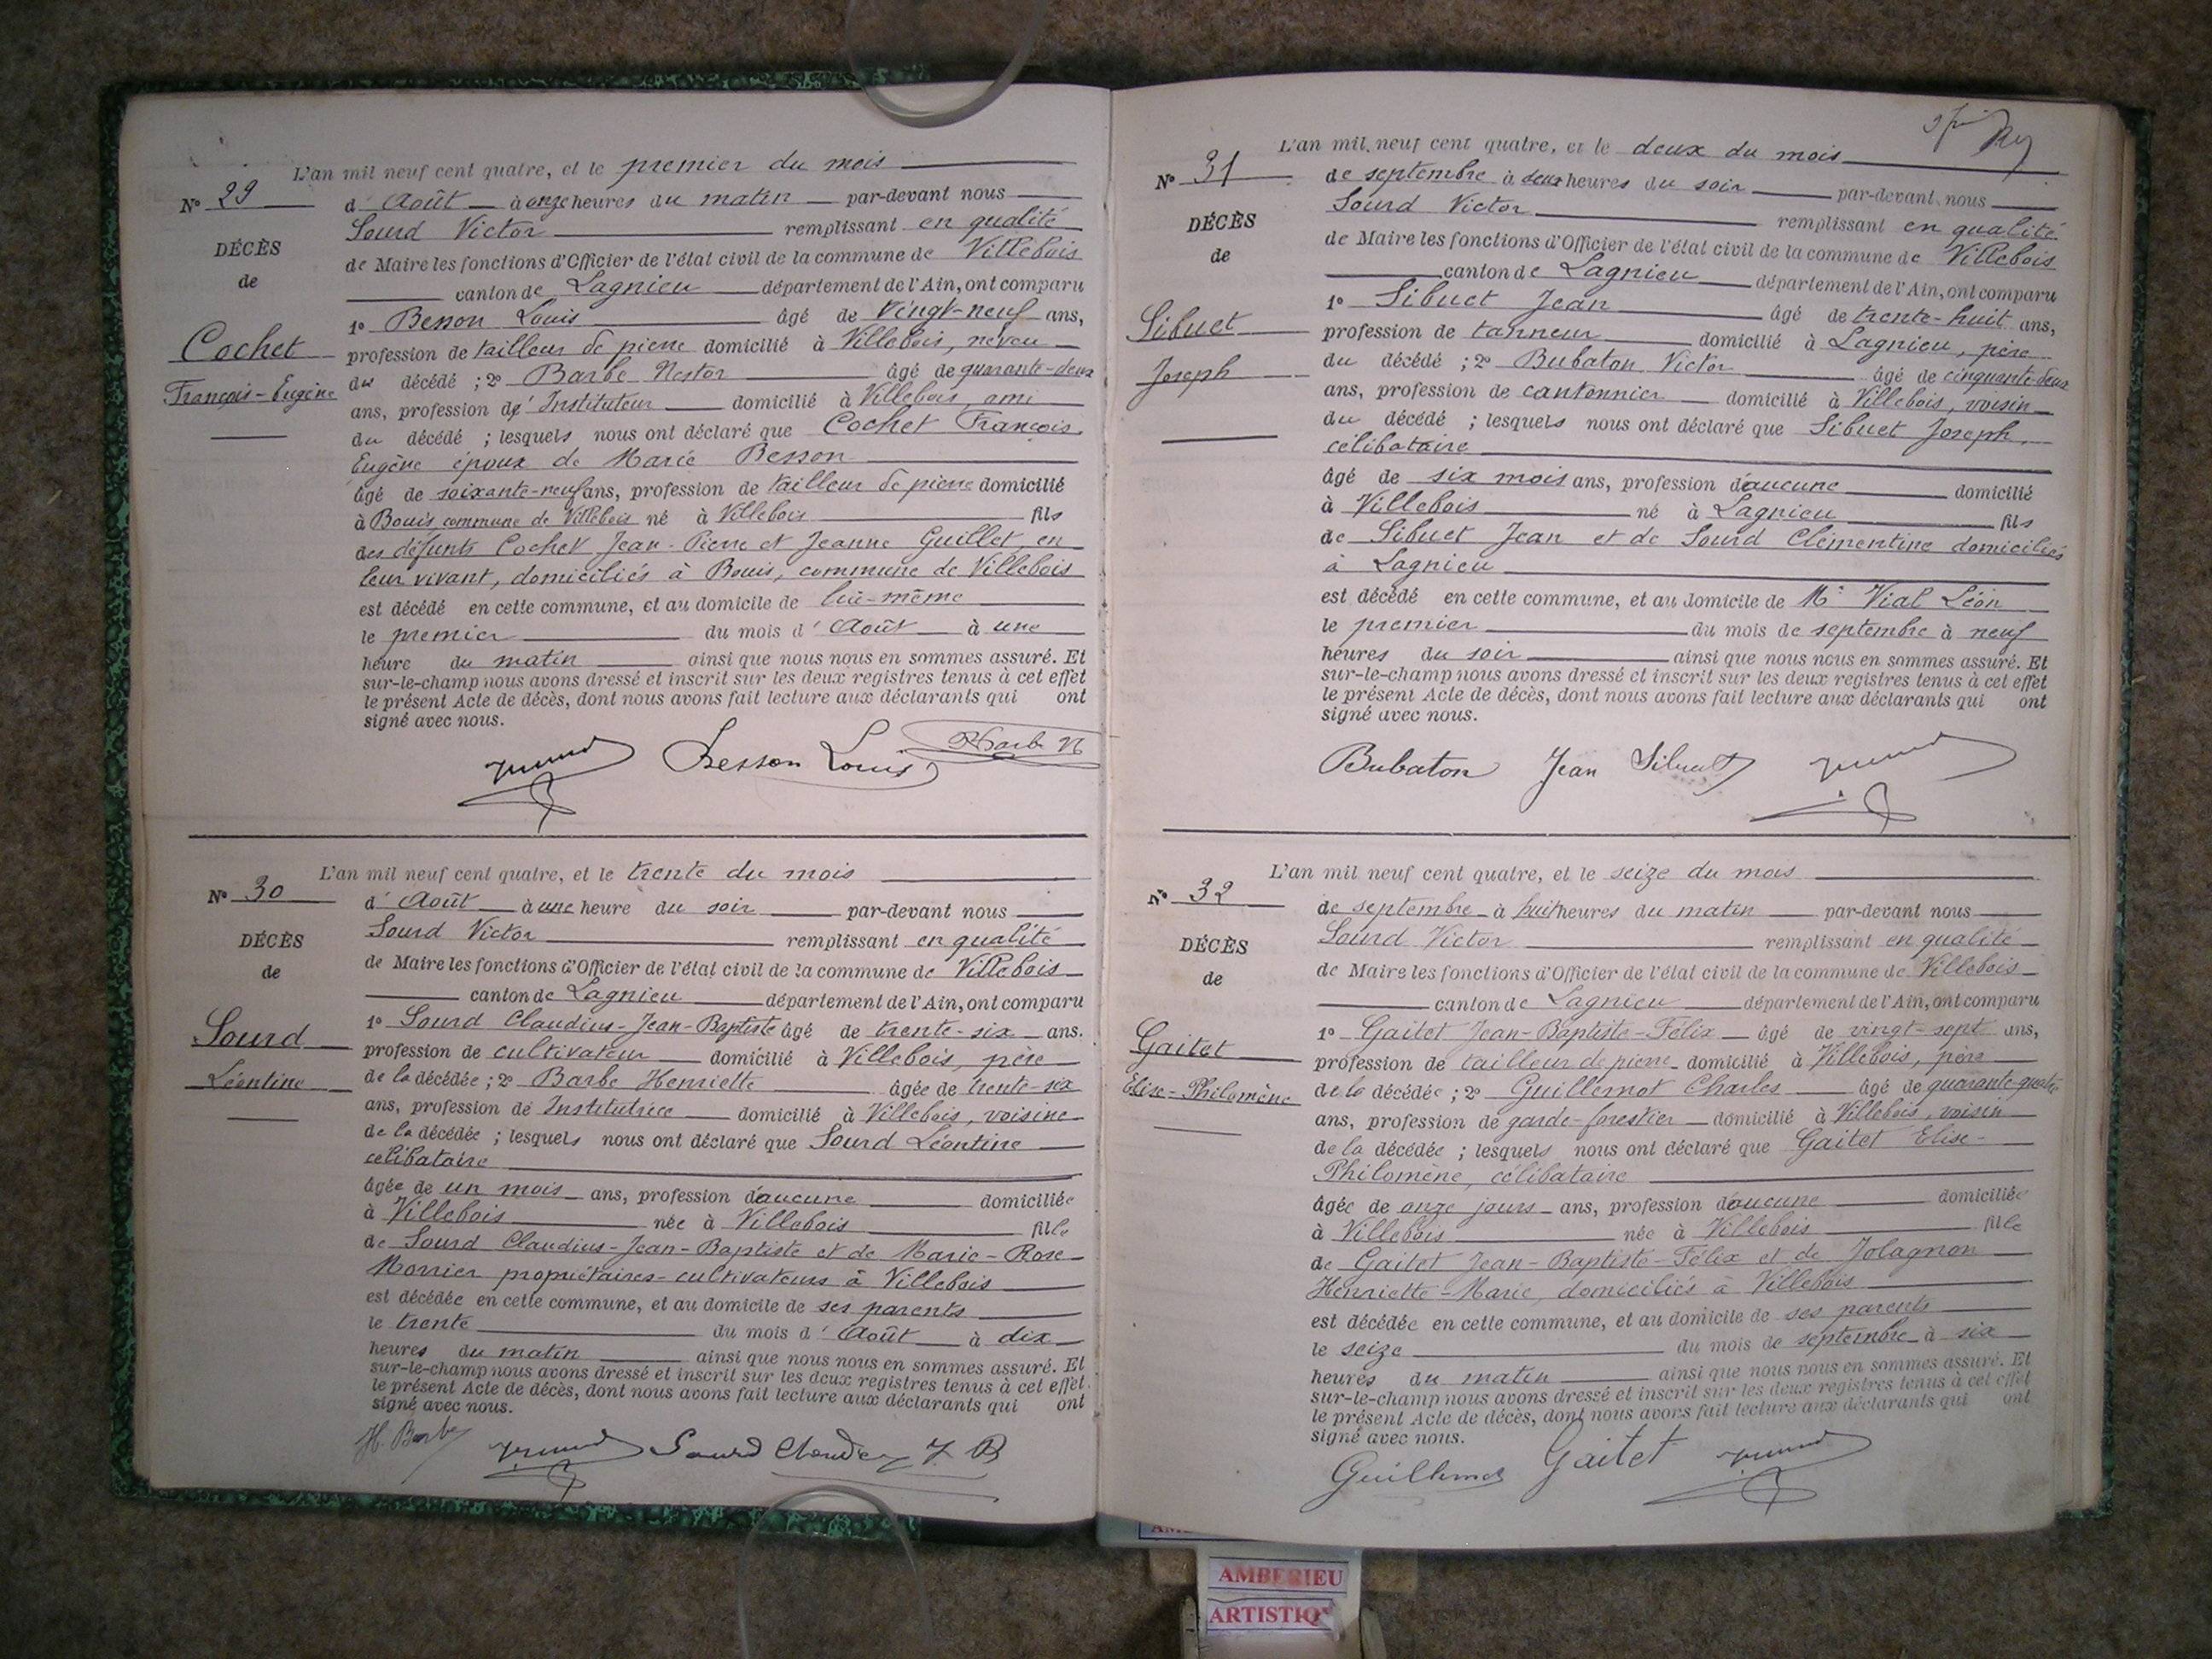 L'an mil neuf cent quatre, et le premier du mois
N° 29
d' Août à onze heures du matin par-devant nous
Sourd Victor remplissant en qualité
DÉCÈS
de Maire les fonctions d'Officier de l'état civil de la commune de Villebois
de
canton de Lagnieu département de l'Ain, ont comparu
1° Besson Louis âgé de Vingt-neuf ans,
Cochet
profession de tailleur de pierre domicilié à Villebois, neveu
François-Eugène
du décédé ; 2° Barbe Nestor âgé de quarante-deux
ans, profession d' Instituteur domicilié à Villebois, ami
du décédé ; lesquels nous ont déclaré que Cochet François
Eugène époux de Marie Besson
âgé de soixante-neuf ans, profession de tailleur de pierre domicilié
à Bouis commune de Villebois né à Villebois fils
des défunts Cochet Jean-Pierre et Jeanne Guillet, en
leur vivant, domiciliés à Bouis, commune de Villebois
est décédé en cette commune, et au domicile de lui-même
le premier du mois d' Août à une
heure du matin ainsi que nous nous en sommes assuré. Et
sur-le-champ nous avons dressé et inscrit sur les deux registres tenus à cet effet
le présent Acte de décès, dont nous avons fait lecture aux déclarants qui ont
signé avec nous.
Besson Louis Barbe N
L'an mil neuf cent quatre, et le trente du mois
N° 30
d' Août à une heure du soir par-devant nous
Sourd Victor remplissant en qualité
DÉCÈS
de Maire les fonctions d'Officier de l'état civil de la commune de Villebois
de
canton de Lagnieu département de l'Ain, ont comparu
1° Sourd Claudius-Jean-Baptiste âgé de trente-six ans.
Sourd
profession de cultivateur domicilié à Villebois, père
Léontine
de la décédée ; 2° Barbe Henriette âgée de trente-six
ans, profession de Institutrice domicilié à Villebois, voisine
de la décédée ; lesquels nous ont déclaré que Sourd Léontine
célibataire
âgée de un mois ans, profession d'aucune domiciliée
à Villebois née à Villebois fille
de Sourd Claudius-Jean-Baptiste et de Marie-Rose
Morrier propriétaires-cultivateurs à Villebois
est décédée en cette commune, et au domicile de ses parents
le trente du mois d' Août à dix
heures du matin ainsi que nous nous en sommes assuré. Et
sur-le-champ nous avons dressé et inscrit sur les deux registres tenus à cet effet
le présent Acte de décès, dont nous avons fait lecture aux déclarants qui ont
signé avec nous.
H. Barbe Sourd J. B
L'an mil neuf cent quatre, et le deux du mois
N° 31
de septembre à deux heures du soir par-devant nous
Sourd Victor remplissant en qualité
DÉCÈS
de Maire les fonctions d'Officier de l'état civil de la commune de Villebois
de
canton de Lagnieu département de l'Ain, ont comparu
1° Sibuet Jean âgé de trente-huit ans,
Sibuet
profession de tanneur domicilié à Lagnieu, père
Joseph
du décédé ; 2° Bubaton Victor âgé de cinquante-deux
ans, profession de cantonnier domicilié à Villebois, voisin
du décédé ; lesquels nous ont déclaré que Sibuet Joseph,
célibataire
âgé de six mois ans, profession d'aucune domicilié
à Villebois né à Lagnieu fils
de Sibuet Jean et de Sourd Clémentine domiciliés
à Lagnieu
est décédé en cette commune, et au domicile de Mr Vial Léon
le premier du mois de septembre à neuf
heures du soir ainsi que nous nous en sommes assuré. Et
sur-le-champ nous avons dressé et inscrit sur les deux registres tenus à cet effet
le présent Acte de décès, dont nous avons fait lecture aux déclarants qui ont
signé avec nous.
Bubaton Jean Sibuet
L'an mil neuf cent quatre, et le seize du mois
N° 32
de septembre à huit heures du matin par-devant nous
Sourd Victor remplissant en qualité
DÉCÈS
de Maire les fonctions d'Officier de l'état civil de la commune de Villebois
de
canton de Lagnieu département de l'Ain, ont comparu
1° Gaitet Jean-Baptiste-Félix âgé de vingt-sept ans,
Gaitet
profession de tailleur de pierre domicilié à Villebois, père
Elise-Philomène
de la décédée ; 2° Guillemot Charles âgé de quarante-quatre
ans, profession de garde-forestier domicilié à Villebois, voisin
de la décédée ; lesquels nous ont déclaré que Gaitet Elise-
Philomène, célibataire
âgée de onze jours ans, profession d'aucune domiciliée
à Villebois née à Villebois fille
de Gaitet Jean-Baptiste-Félix et de Jolagnon
Henriette-Marie, domiciliés à Villebois
est décédée en cette commune, et au domicile de ses parents
le seize du mois de septembre à six
heures du matin ainsi que nous nous en sommes assuré. Et
sur-le-champ nous avons dressé et inscrit sur les deux registres tenus à cet effet
le présent Acte de décès, dont nous avons fait lecture aux déclarants qui ont
signé avec nous.
Guillemot Gaitet
AMBERIEU
ARTISTIQ